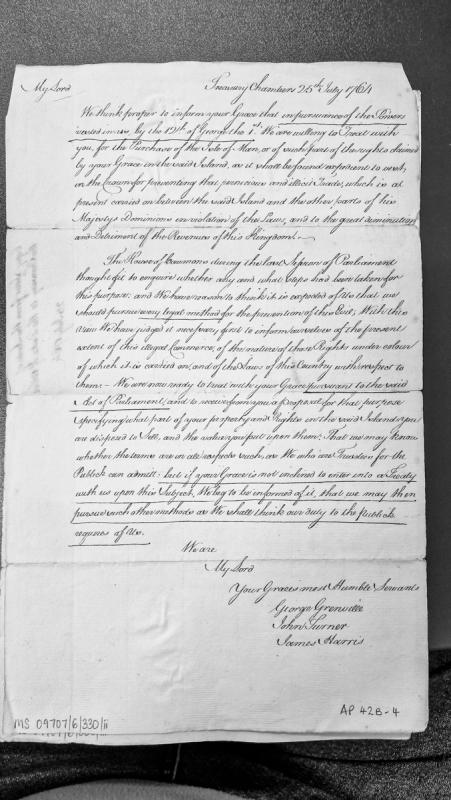 Treasury Chambers 25th July 1764
My Lord
We think proper to inform your Grace that in pursuance of the Powers
vested in us by the 12th of George the 1st. We are willing to Treat with
you, for the Purchase of the Isle of Man, or of such parts of the rights claimed
by your Grace in the said Island, as it shall be found expedient to vest,
in the Crown for preventing that pernicious and illicit Trade, which is at
present carried on between the said Island and the other parts of his
Majesty's Dominions in violation of the Laws, and to the great diminution
and Detriment of the Revenue of this Kingdom.
The House of Commons during the last Session of Parliament
thought fit to enquire whether any and what steps had been taken for
this purpose; and We have reason to think it is expected of Us that we
should pursue every legal method for the prevention of this Evil; With this
View We have judged it necessary first to inform ourselves of the present
extent of this illegal Commerce, of the nature of those Rights under colour
of which it is carried on, and of the Laws of this Country with respect to
them: We are now ready to treat with your Grace pursuant to the said
Act of Parliament, and to receive from you a Proposal for that purpose
specifying what part of your property and Rights in the said Island you
are disposed to Sell, and the value you put upon them; That we may know
whether the terms are in all respects such, as We who are Trustees for the
Publick can admit: but if your Grace is not inclined to enter into a Treaty
with us upon this Subject, We beg to be informed of it, that we may then
pursue such other methods as We shall think our duty to the Publick
requires of Us.
We are
My Lord
Your Grace's most Humble Servants
George Grenville
John Turner
James Harris
MS 09707/6/330/ii
AP 42B-4